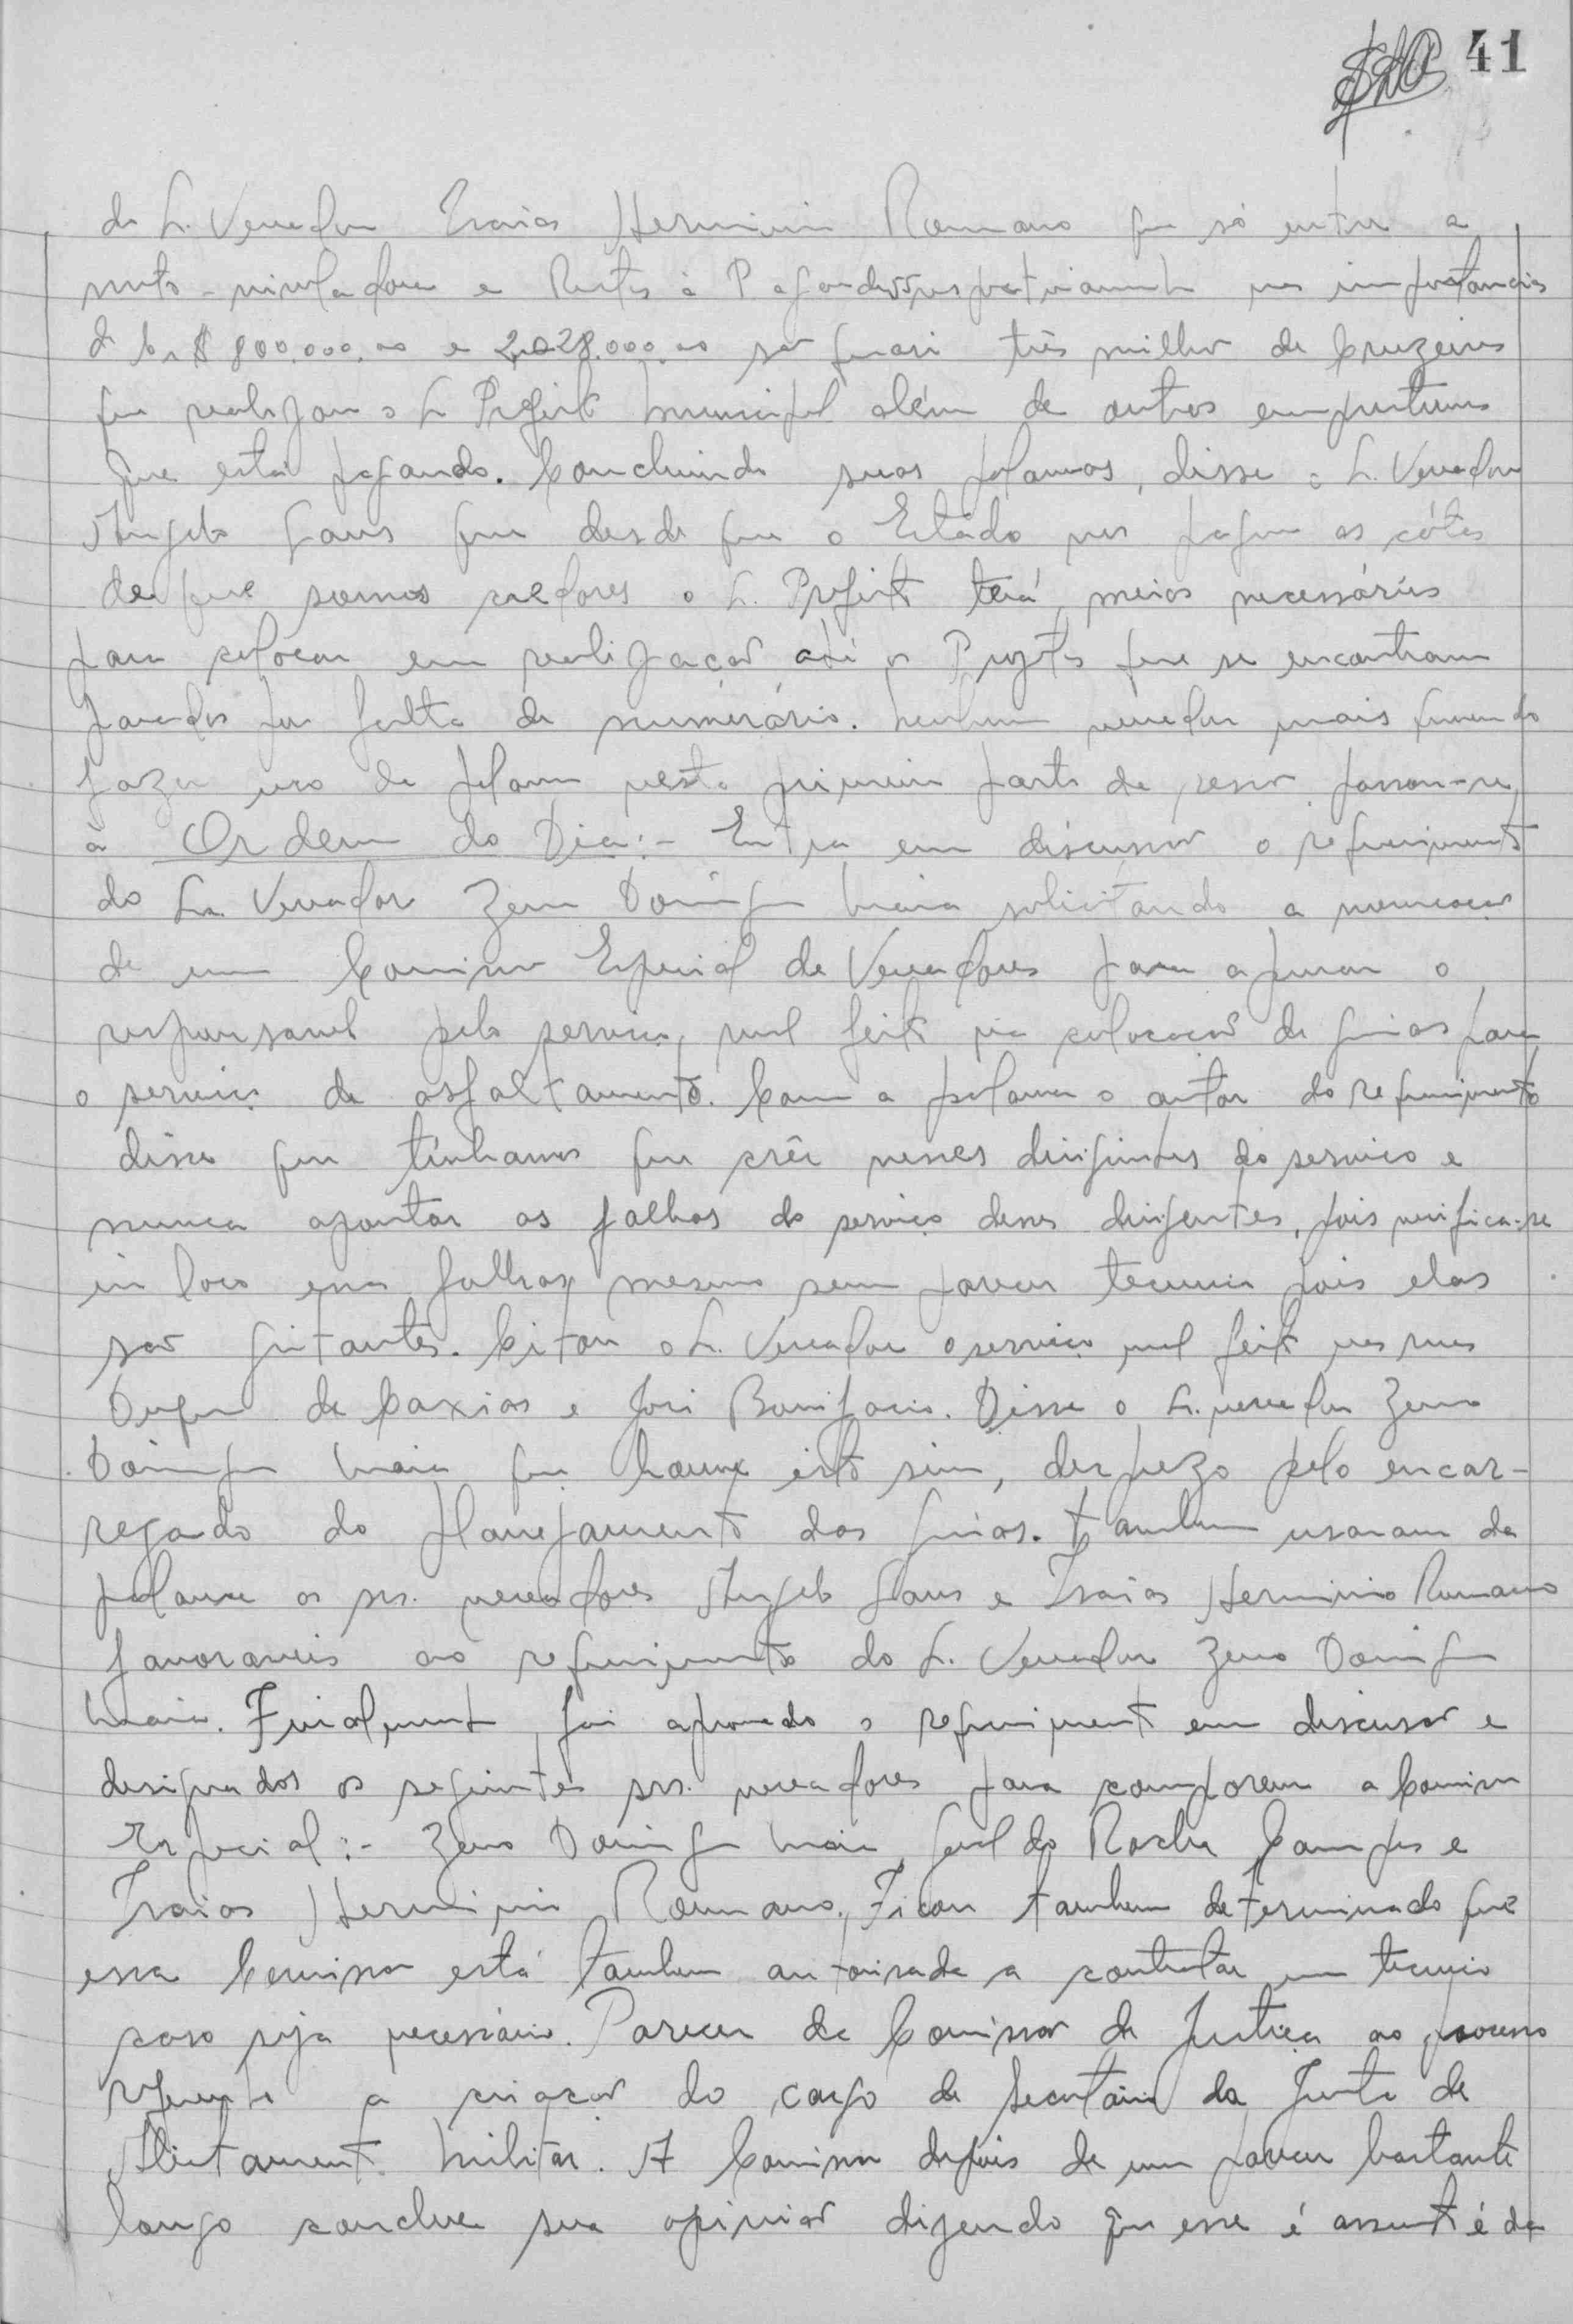 41
do Sr. Vereador Isaias Herminio Romano que só entre a
moto-niveladora e Restos á Pagar respectivamente nas importancias
de Cr$ 800.000,00 e 2.028.000,00 são quasi três milhões de Cruzeiros
que realizou o Sr. Prefeito Municipal além de outros emprestimos
que está pagando. Concluindo suas palavras, disse o Sr. Vereador
Angelo Gaus que desde que o Estado nos pague as cótas
de que somos credores o Sr. Prefeito terá meios necessários
para colocar em realização até os Projetos que se encontram
parados por falta de numerário. Nenhum vereador mais querendo
fazer uso da palavra nesta primeira parte da sessão passou-se
à Ordem do Dia:- Entra em discussão o requerimento
do Sr. Vereador Zeno Domingues Maia solicitando a nomeação
de uma Comissão Especial de Vereadores para apurar o
responsavel pelo serviço mal feito na colocação de guias para
o serviço de asfaltamento. Com a palavra o autor do requerimento
disse que tinhamos que crêr nesses dirigentes do serviço e
nunca apontar as falhas do serviço desses dirigentes, pois verifica-se
in loco essas falhas mesmo sem parecer tecnico pois elas
são gritantes. Citou o Sr. Vereador o serviço mal feito nas ruas
Duque de Caxias e José Bonifacio. Disse o Sr. vereador Zeno
Domingues Maia que houve isto sim, desprezo pelo encar-
regado do planejamento das guias. Tambem usaram da
palavra os srs. vereadores Angelo Gaus e Isaias Herminio Romano
favoraveis ao requerimento do Sr. Vereador Zeno Domingues
Maia. Finalmente foi aprovado o requerimento em discussão e
designados os seguintes srs. vereadores para comporem a Comissão
Especial:- Zeno Domingues Maia, Geraldo Rocha Campos e
Isaias Herminio Romano. Ficou tambem determinado que
essa Comissão está tambem autorisada a contratar um tecnico
caso seja necessário. Parecer da Comissão de Justiça ao processo
referente a criação do cargo de Secretário da Junta de
Alistamento Militar. A Comissão depois de um parecer bastante
longo conclue sua opinião dizendo que esse é assunto é da